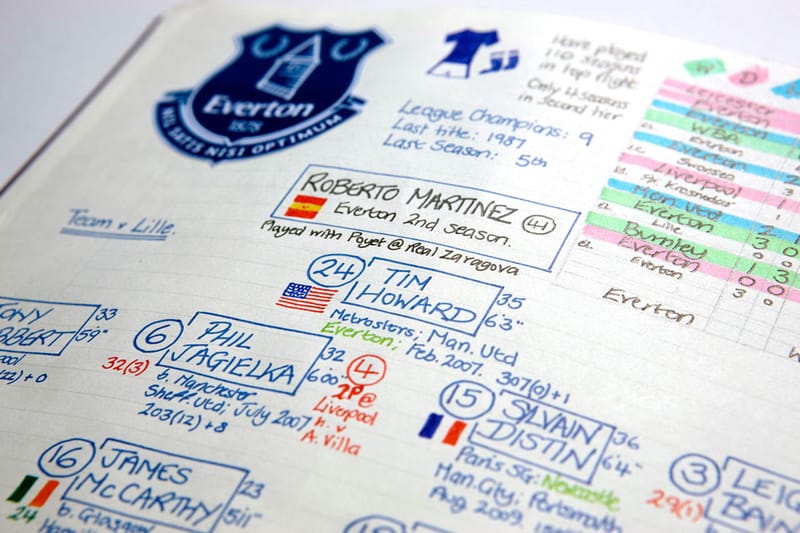 Everton
1878
NIL SATIS NISI OPTIMUM
Have played
110 seasons
in top flight
Only 4 seasons
in second tier
League Champions: 9
Last title: 1987
Last Season: 5th
ROBERTO MARTINEZ 41
Everton 2nd Season.
Played with Poyet @ Real Zaragova
Team v Lille.
W D
Leicester
Everton
Everton
WBA
Everton
Everton
Swansea
Liverpool
Everton
Krasnodar
Man. Utd 2
Everton 1
Lille 0
Everton 3 0
Burnley 1 3
Everton 0 0
Everton 3 0
Everton
24 TIM
HOWARD
35
6'3"
Metrostars; Man. Utd
Everton; Feb. 2007.
307(0)+1
33
5'9"
+0
6 PHIL
JAGIELKA
32
6'00"
32(3)
b. Manchester
Sheff. Utd; July 2007
203(12)+8
4
2P @
Liverpool
h. v
A. Villa
15 SYLVAIN
DISTIN
36
6'4"
Paris SG; Newcastle
Man. City; Portsmouth
Aug 2009.
16 JAMES
McCARTHY
23
5'11"
24
b. Glasgow
3 LEIG
BAIN
29(1)